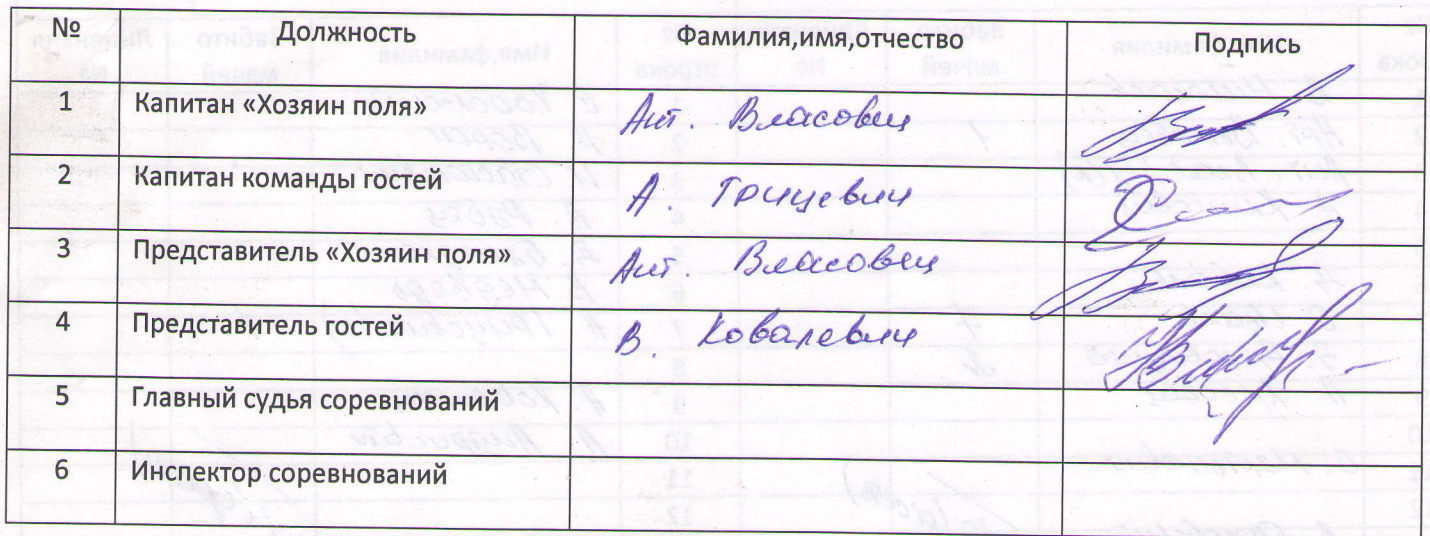 № Должность Фамилия,имя,отчество Подпись
1 Капитан «Хозяин поля» Ант. Власовец
2 Капитан команды гостей А. Грицевич
3 Представитель «Хозяин поля» Ант. Власовец
4 Представитель гостей В. Ковалевич
5 Главный судья соревнований
6 Инспектор соревнований